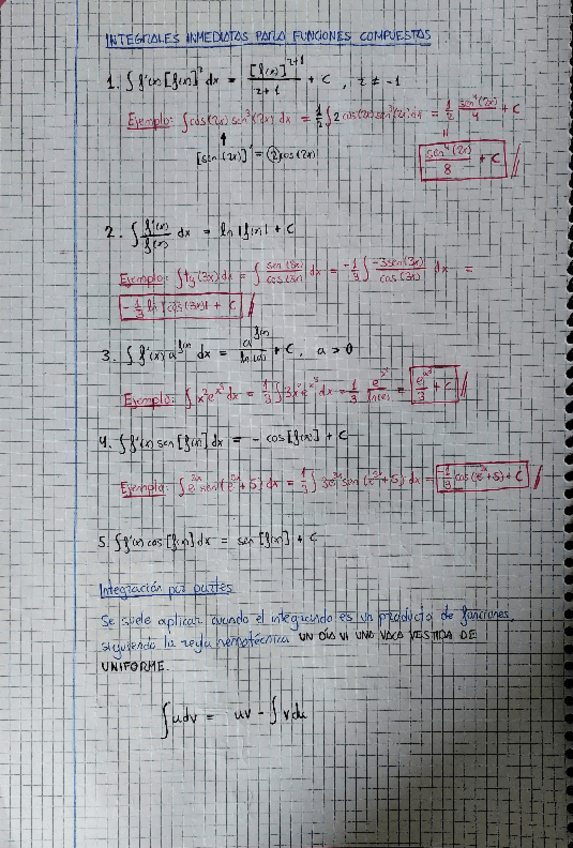 INTEGRALES INMEDIATAS PARA FUNCIONES COMPUESTAS
1. ∫ f'(x) [f(x)]^r dx = [f(x)]^(r+1) / (r+1) + C , r ≠ -1
Ejemplo: ∫ cos(2x) sen³(2x) dx = 1/2 ∫ 2 cos(2x) sen³(2x) dx = 1/2 sen⁴(2x)/4 + C
[sen(2x)]' = 2 cos(2x)
= sen⁴(2x)/8 + C
2. ∫ f'(x)/f(x) dx = ln |f(x)| + C
Ejemplo: ∫ tg(3x) dx = ∫ sen(3x)/cos(3x) dx = -1/3 ∫ -3sen(3x)/cos(3x) dx =
-1/3 ln |cos(3x)| + C
3. ∫ f'(x) a^f(x) dx = a^f(x)/ln(a) + C, a > 0
Ejemplo: ∫ x² e^x³ dx = 1/3 ∫ 3x² e^x³ dx = 1/3 e^x³/ln(e) = e^x³/3 + C
4. ∫ f'(x) sen [f(x)] dx = - cos [f(x)] + C
Ejemplo: ∫ e^3x sen (e^3x + 5) dx = 1/3 ∫ 3e^3x sen (e^3x + 5) dx = -1/3 cos (e^3x + 5) + C
5. ∫ f'(x) cos [f(x)] dx = sen [f(x)] + C
Integración por partes
Se suele aplicar cuando el integrando es un producto de funciones,
siguiendo la regla nemotécnica UN DÍA VI UNA VACA VESTIDA DE
UNIFORME.
∫ u dv = uv - ∫ v du